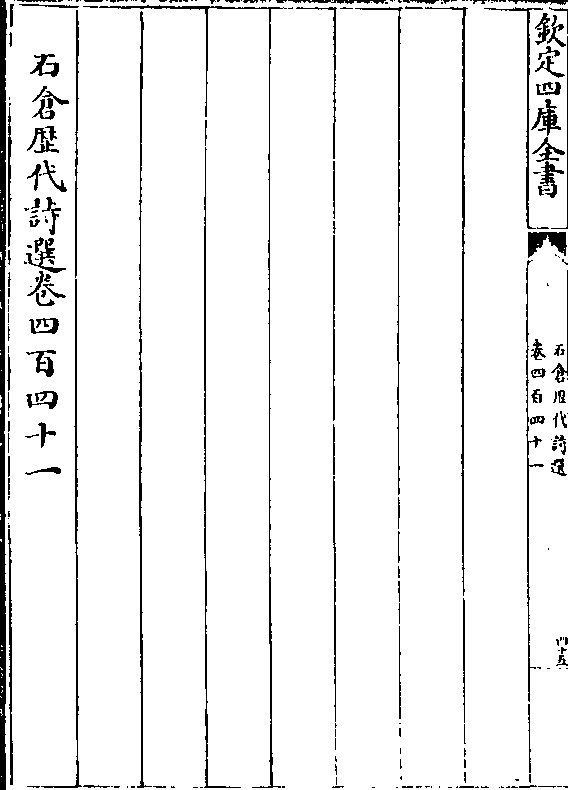 欽定四庫全書
石倉歴代詩選
卷四百四十一
四十五
石倉歴代詩選卷四百四十一